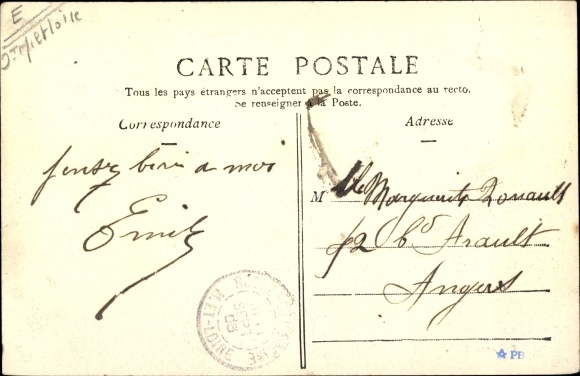 E
CARTE POSTALE
Tous les pays étrangers n'acceptent pas la correspondance au recto.
Se renseigner à la Poste.
Correspondance
Adresse
pensez bien a moi
Emile
M lle Marguerite
2 bd Arault
Angers
ET-LOIRE
PB